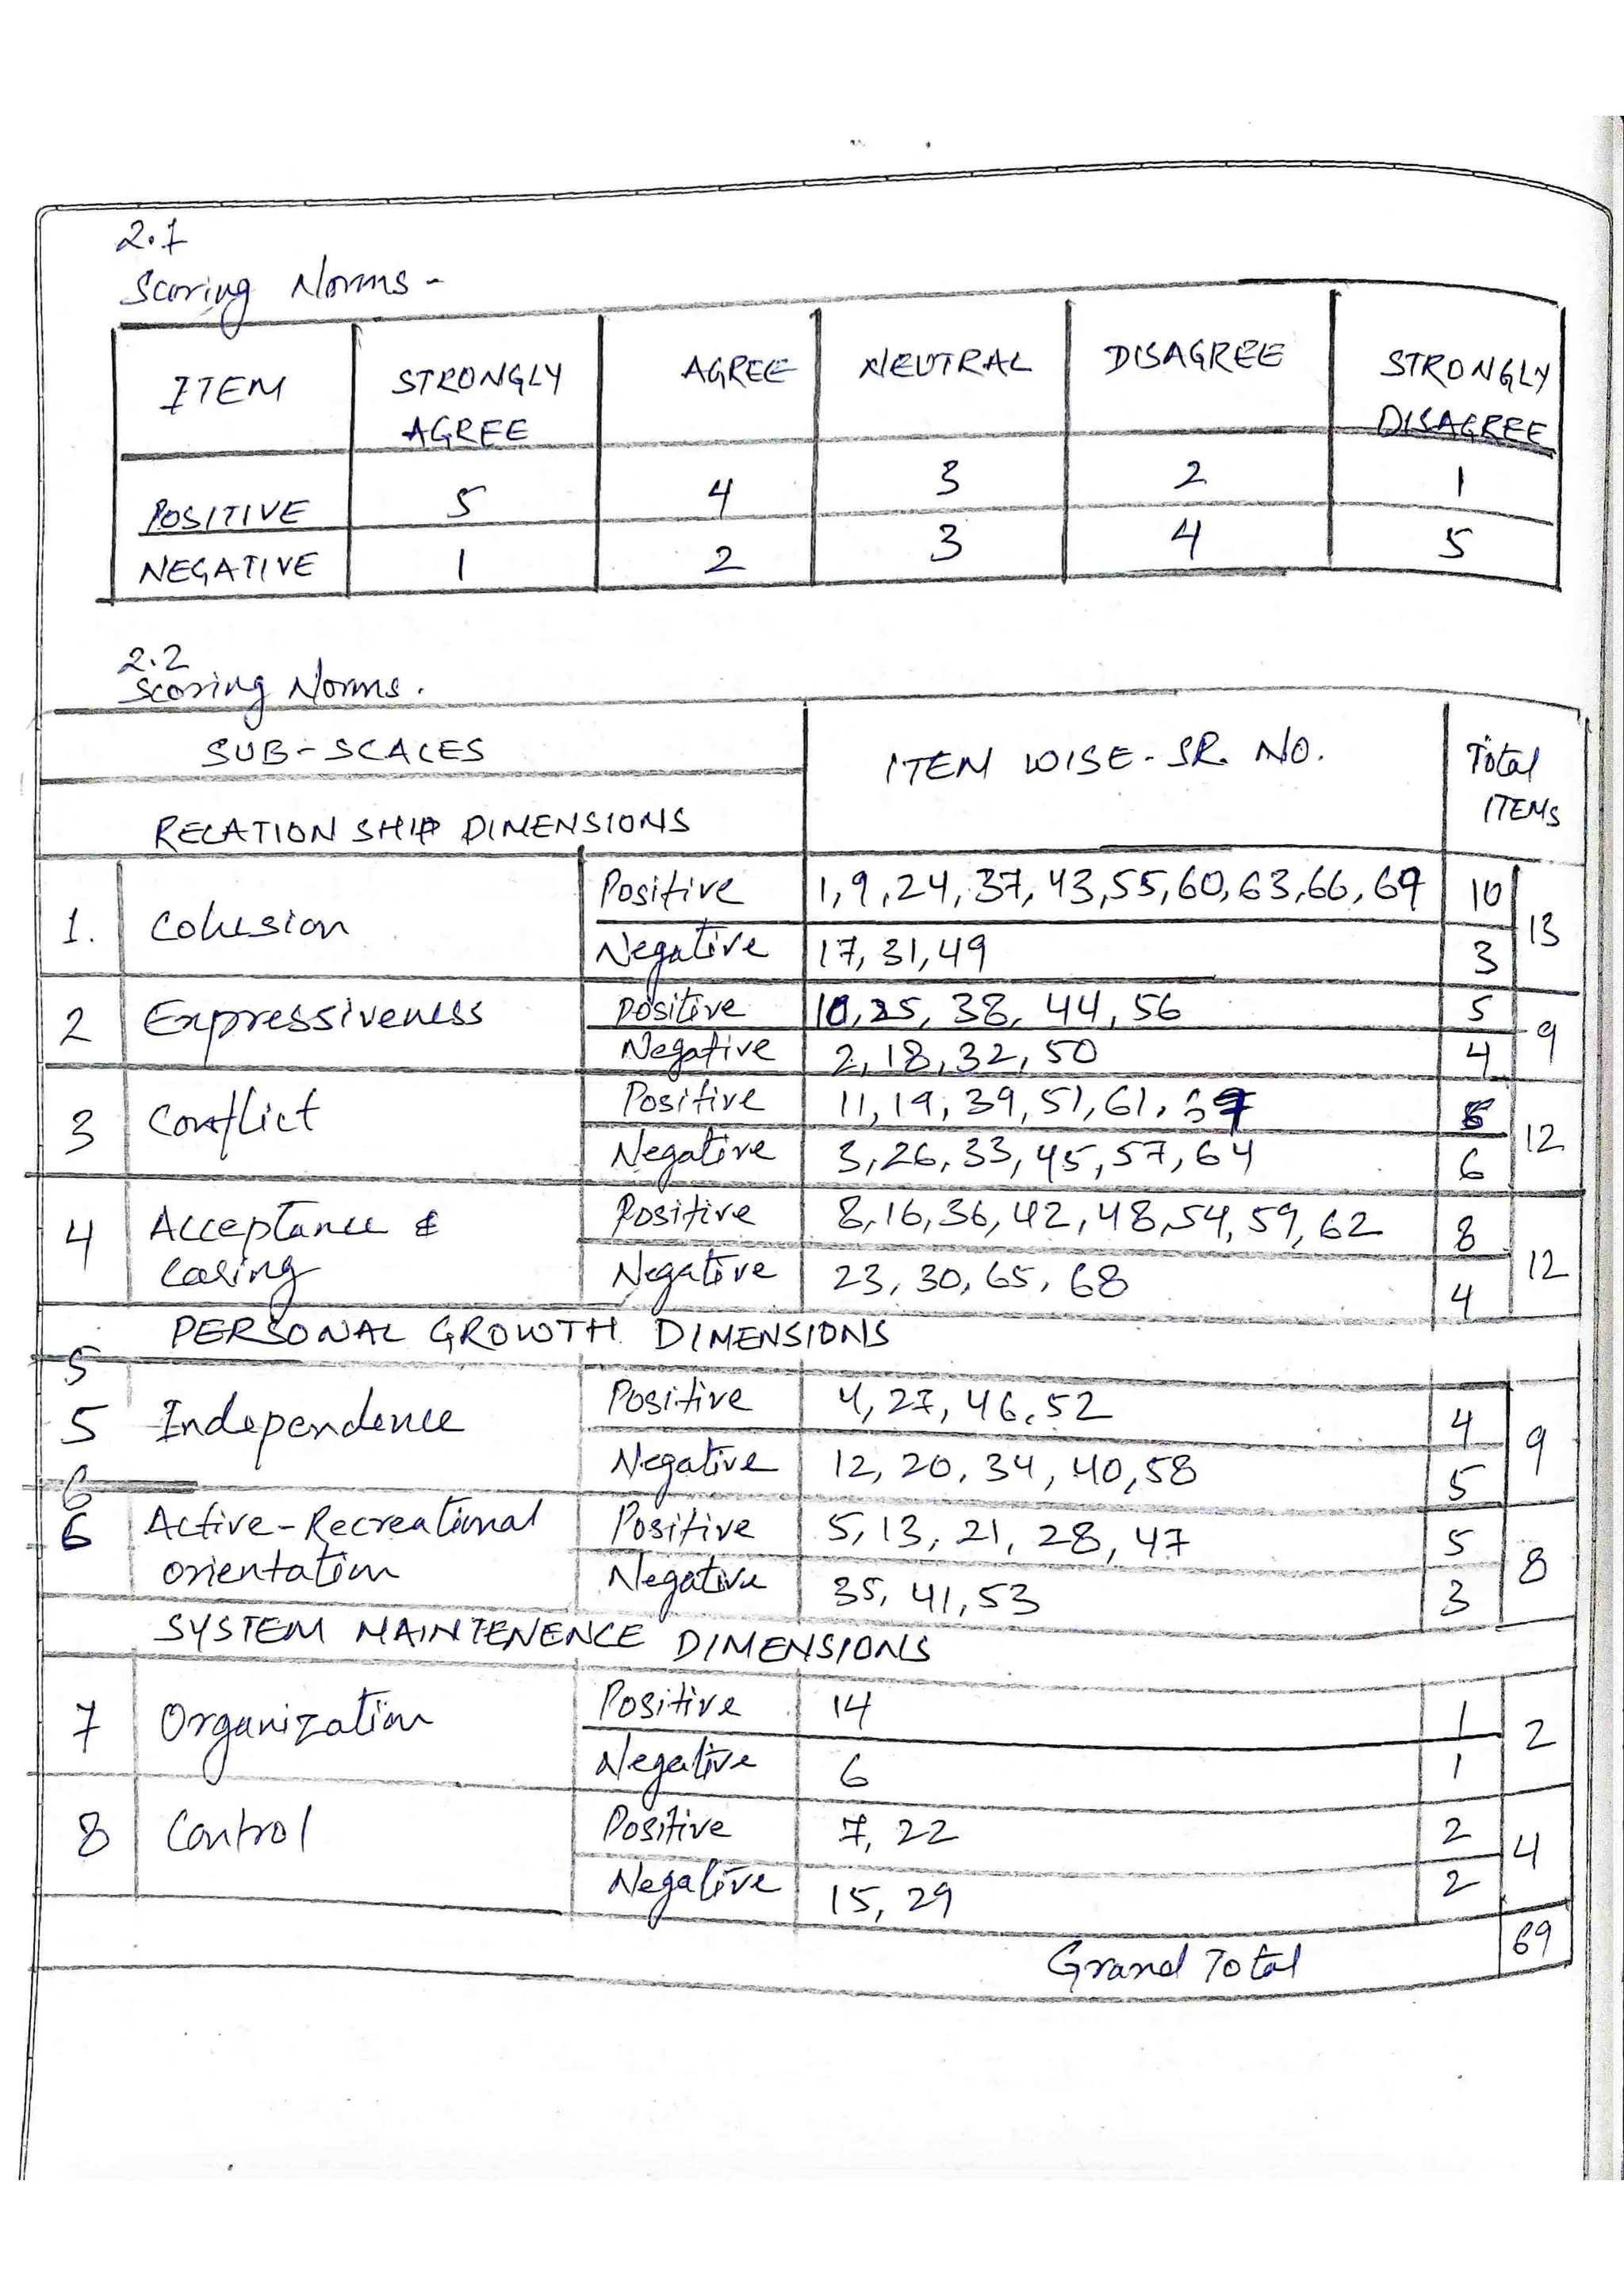 2.1
Scoring Norms -
ITEM STRONGLY AGREE AGREE NEUTRAL DISAGREE STRONGLY DISAGREE
POSITIVE 5 4 3 2 1
NEGATIVE 1 2 3 4 5
2.2
Scoring Norms.
SUB-SCALES ITEM WISE-SR. NO. Total ITEMS
RELATIONSHIP DIMENSIONS
1. Cohesion Positive 1, 9, 24, 37, 43, 55, 60, 63, 66, 69 10 13
Negative 17, 31, 49 3
2 Expressiveness Positive 10, 25, 38, 44, 56 5 9
Negative 2, 18, 32, 50 4
3 Conflict Positive 11, 19, 39, 51, 61, 12
Negative 3, 26, 33, 45, 57, 64 6
4 Acceptance & Caring Positive 8, 16, 36, 42, 48, 54, 59, 62 8 12
Negative 23, 30, 65, 68 4
PERSONAL GROWTH DIMENSIONS
5
5 Independence Positive 4, 27, 46, 52 4 9
Negative 12, 20, 34, 40, 58 5
6
6 Active-Recreational orientation Positive 5, 13, 21, 28, 47 5 8
Negative 35, 41, 53 3
SYSTEM MAINTENENCE DIMENSIONS
7 Organization Positive 14 1 2
Negative 6 1
8 Control Positive 7, 22 2 4
Negative 15, 29 2
Grand Total 69